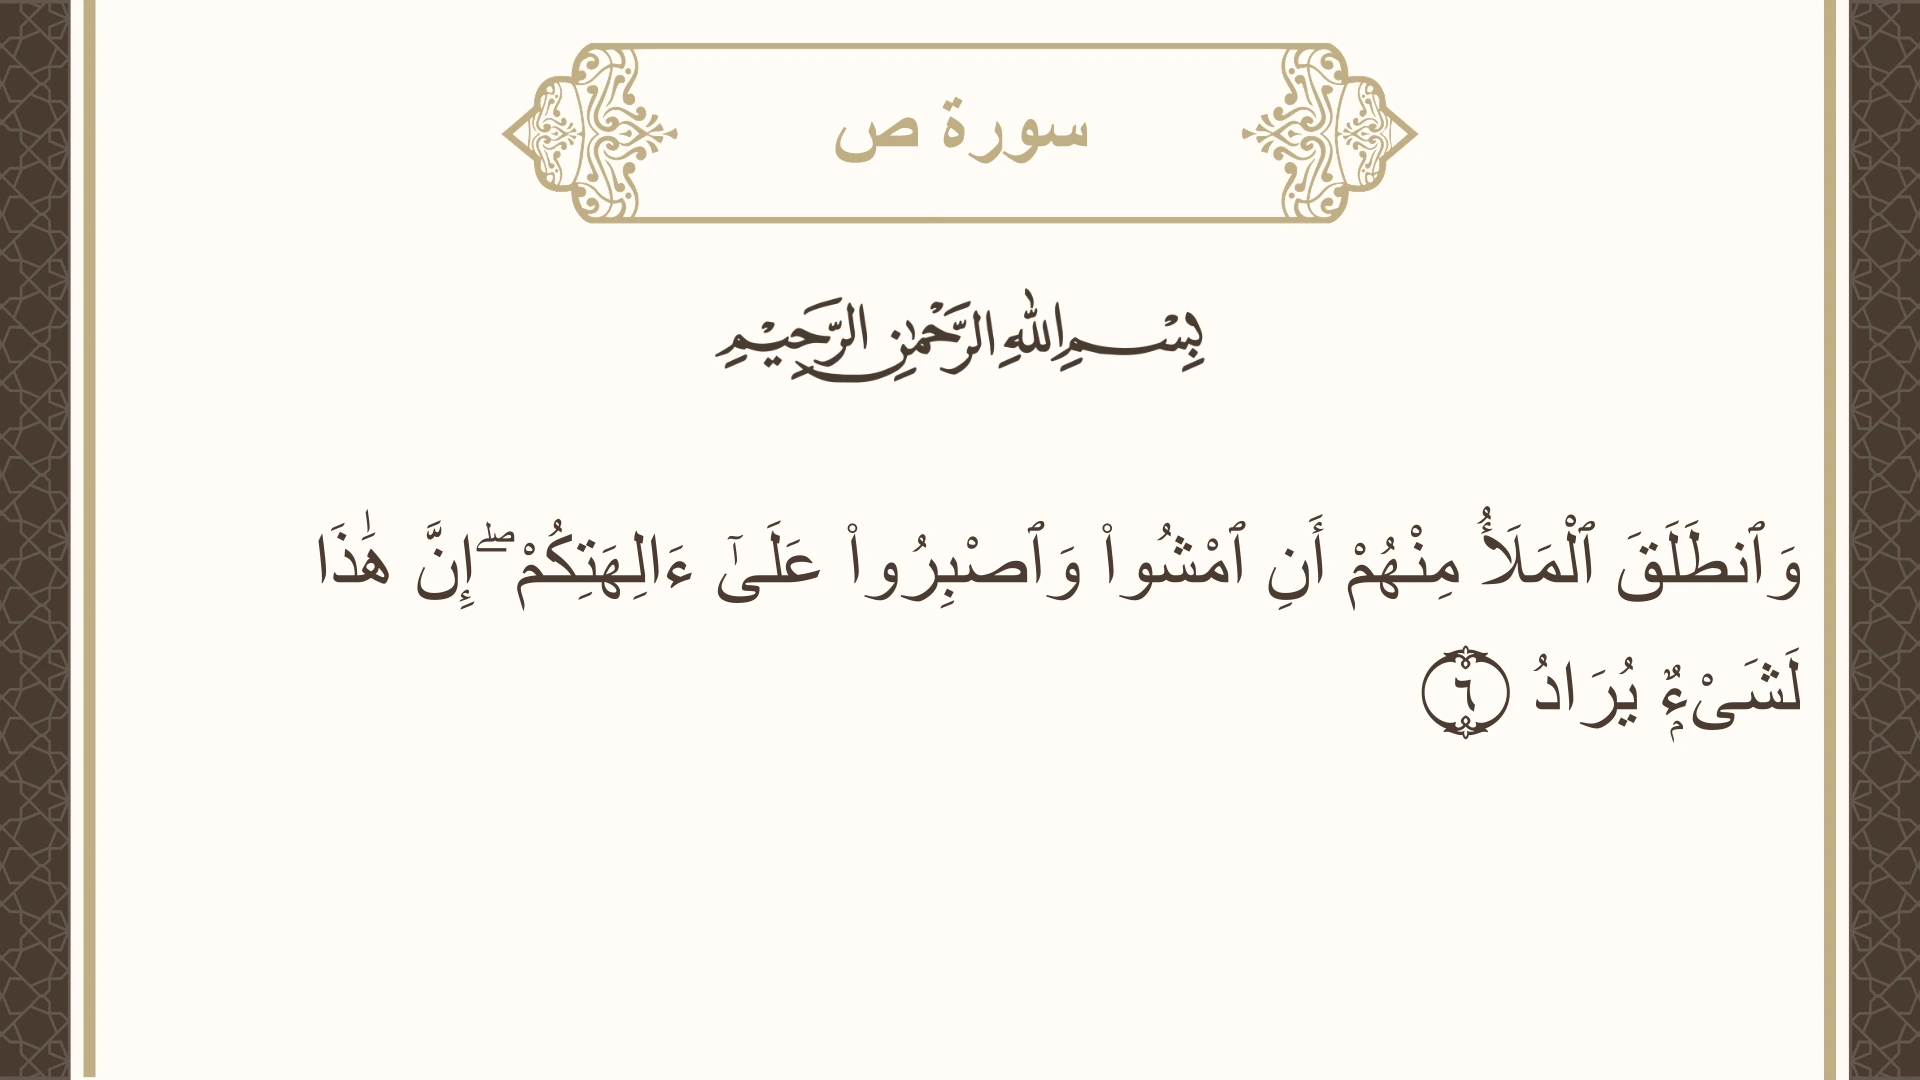 سورة ص
بِسْمِ اللهِ الرَّحْمٰنِ الرَّحِيْمِ
وَٱنطَلَقَ ٱلْمَلَأُ مِنْهُمْ أَنِ ٱمْشُوا۟ وَٱصْبِرُوا۟ عَلَىٰٓ ءَالِهَتِكُمْ ۖ إِنَّ هَٰذَا
لَشَىْءٌۭ يُرَادُ ٦